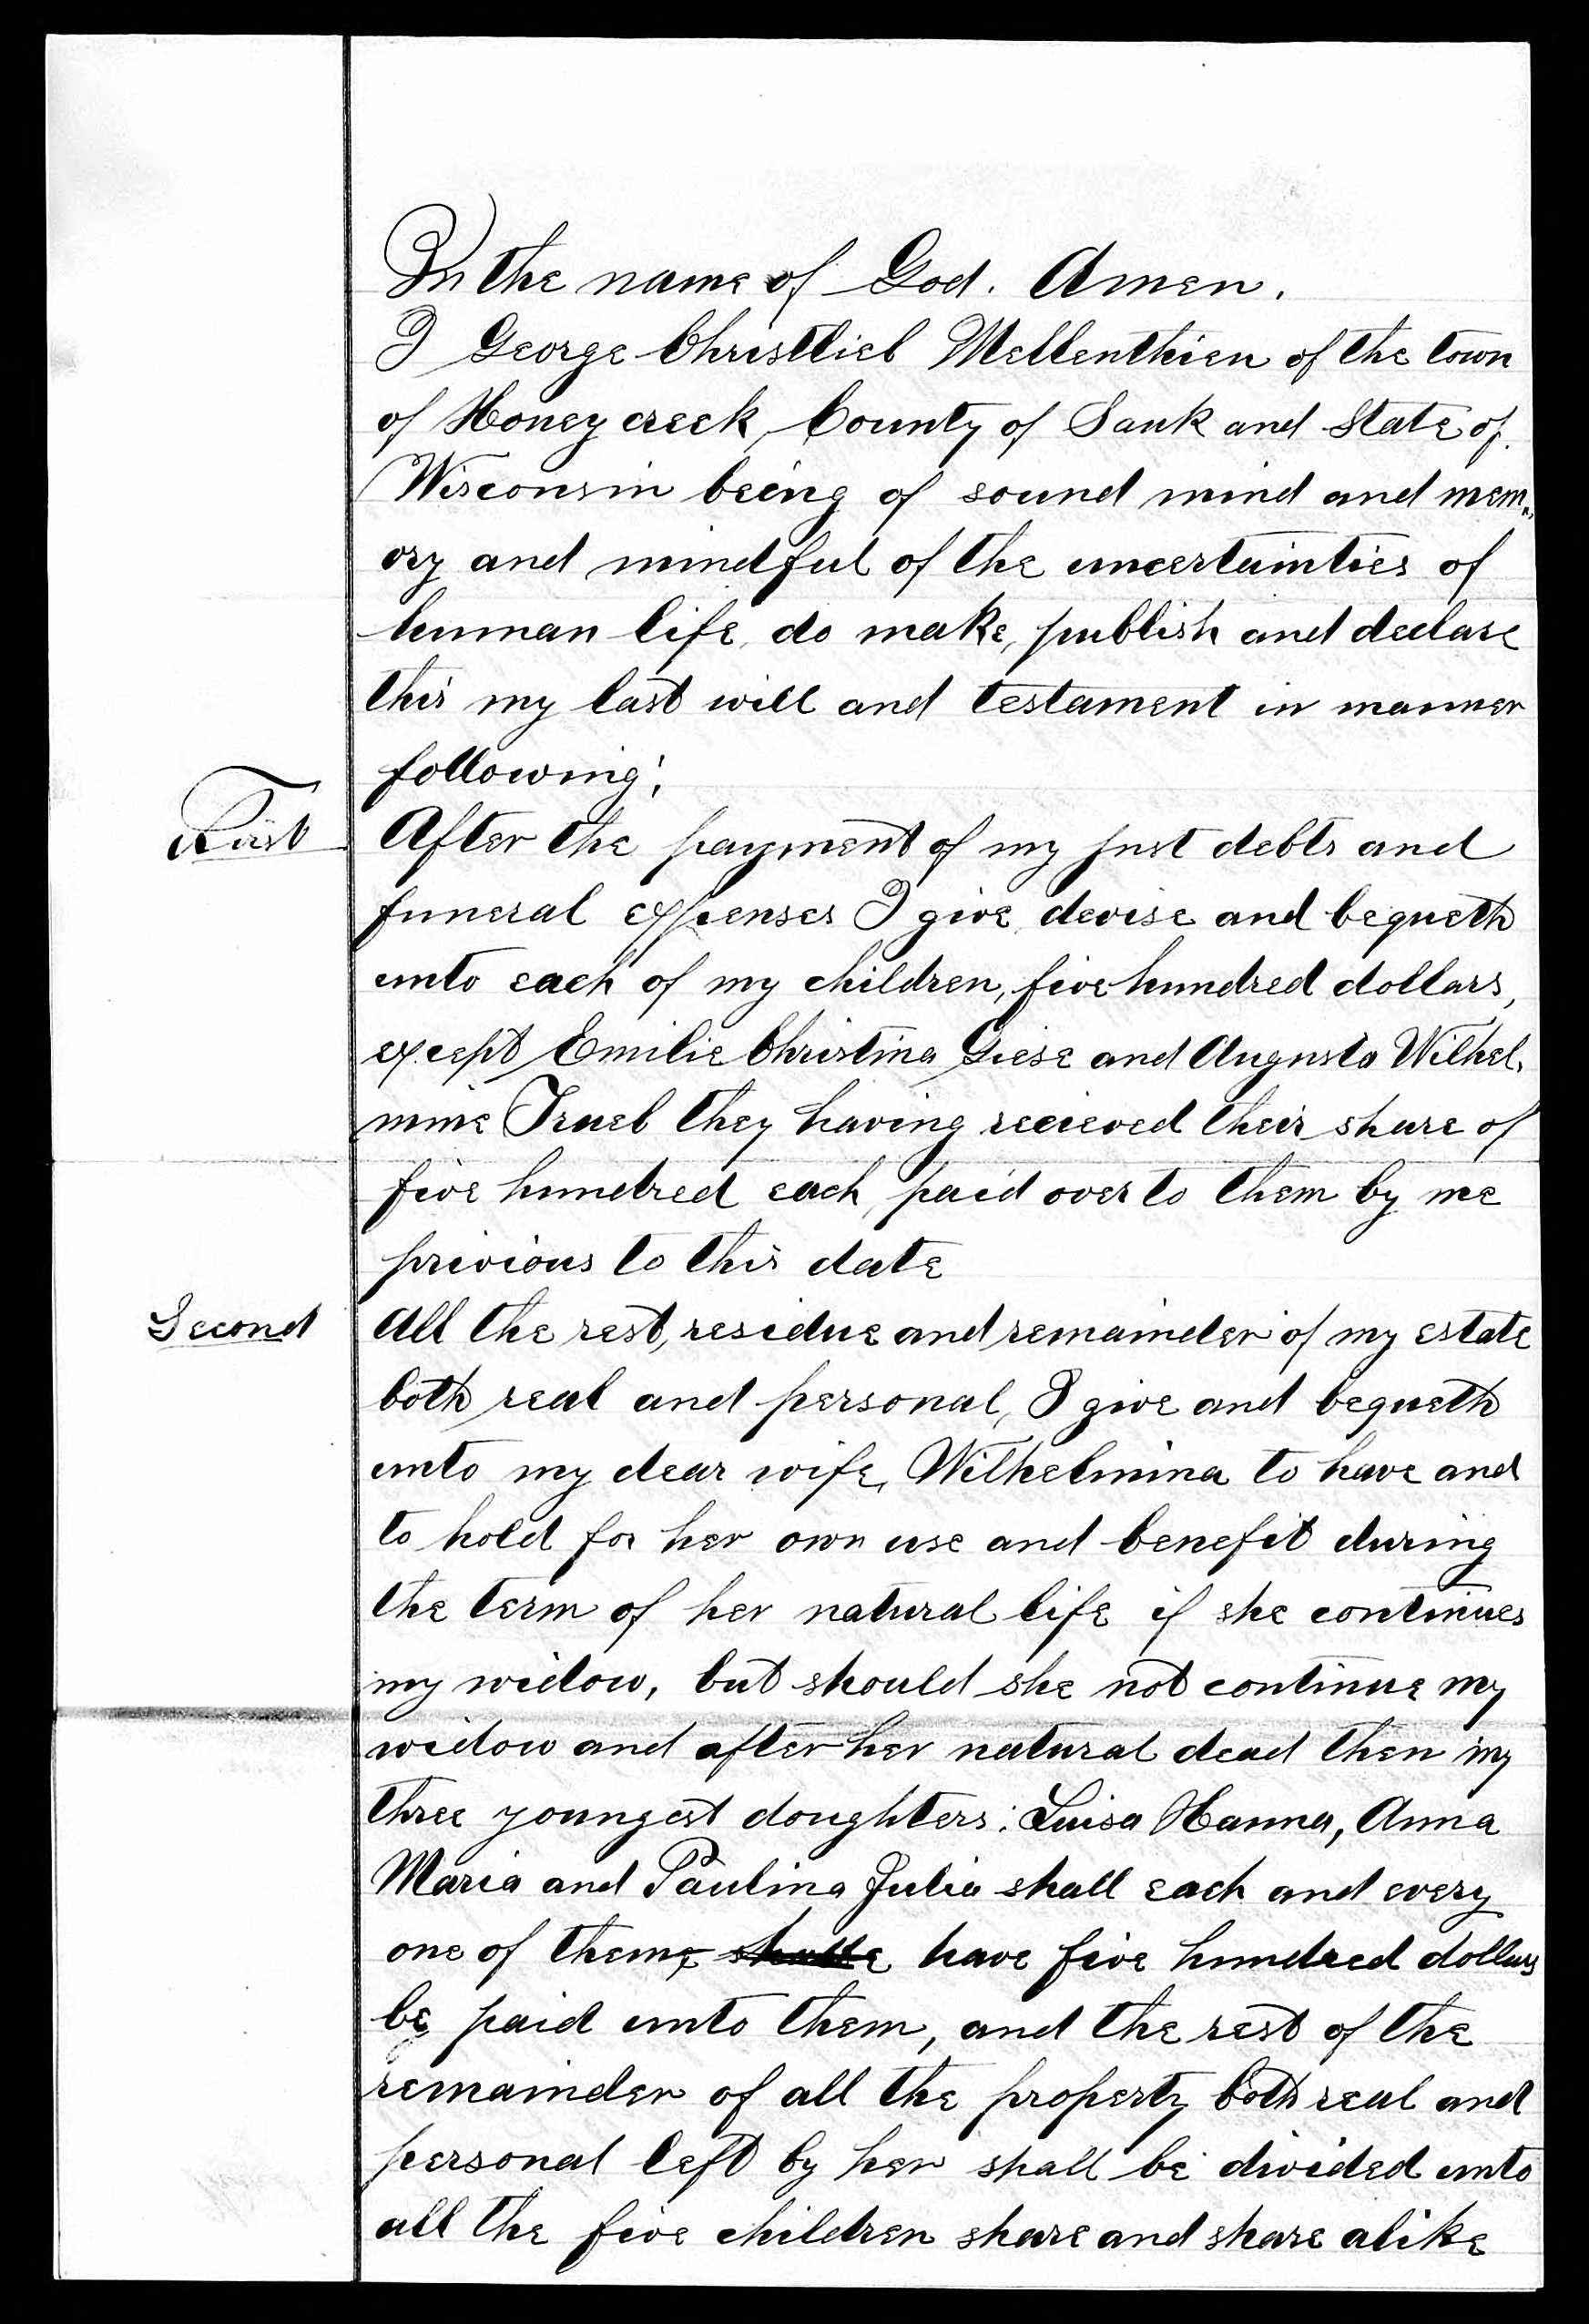 In the name of God. Amen.
I George Christlieb Mellenthien of the town
of Honey creek, County of Sauk and State of
Wisconsin being of sound mind and mem-
ory and mindful of the uncertainties of
human life, do make, publish and declare
this my last will and testament in manner
following;
First
After the payment of my just debts and
funeral expenses I give, devise and bequeth
unto each of my children, five hundred dollars,
except Emilie Christina Giese and Augusta Wilhel-
mine Truel they having recieved their share of
five hundred each, paid over to them by me
privious to this date
Second
All the rest, residue and remainder of my estate
both real and personal, I give and bequeth
unto my dear wife, Wilhelmina to have and
to hold for her own use and benefit during
the term of her natural life if she continues
my widow, but should she not continue my
widow and after her natural dead then my
three youngest doughters: Luisa Hanna, Anna
Maria and Paulina Julia shall each and every
one of them, have five hundred dollars
be paid unto them, and the rest of the
remainder of all the property both real and
personal left by her shall be divided unto
all the five children share and share alike